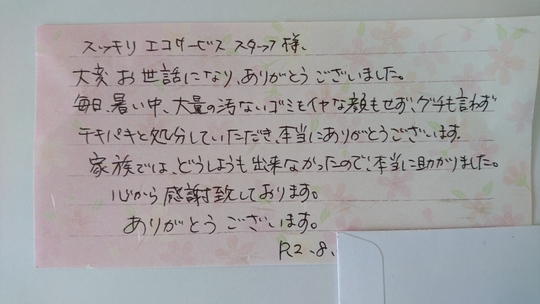 スッキリ エコサービス スタッフ様、
大変お世話になり、ありがとうございました。
毎日、暑い中、大量の汚ないゴミもイヤな顔もせず、グチも言わず
テキパキと処分していただき、本当にありがとうございます。
家族では、どうしようも出来なかったので、本当に助かりました。
心から感謝致しております。
ありがとうございます。
R2.8.